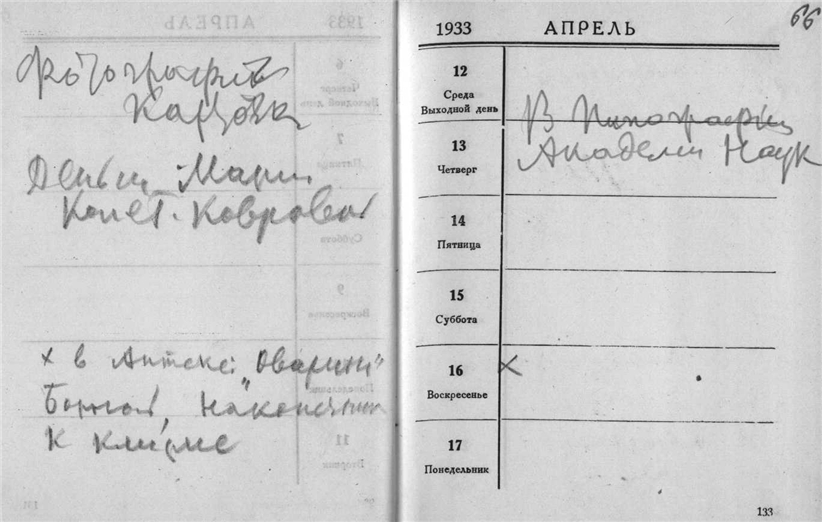 Фотография
Карпова
Деньги Марии
Конст. Ковровой
х в Аптеке: "Оварин"
Борной, наконечник
к клизме
1933 АПРЕЛЬ
66
12
Среда
Выходной день
В Типографию
13
Четверг
Академии Наук
14
Пятница
15
Суббота
16
Воскресенье
х
17
Понедельник
133